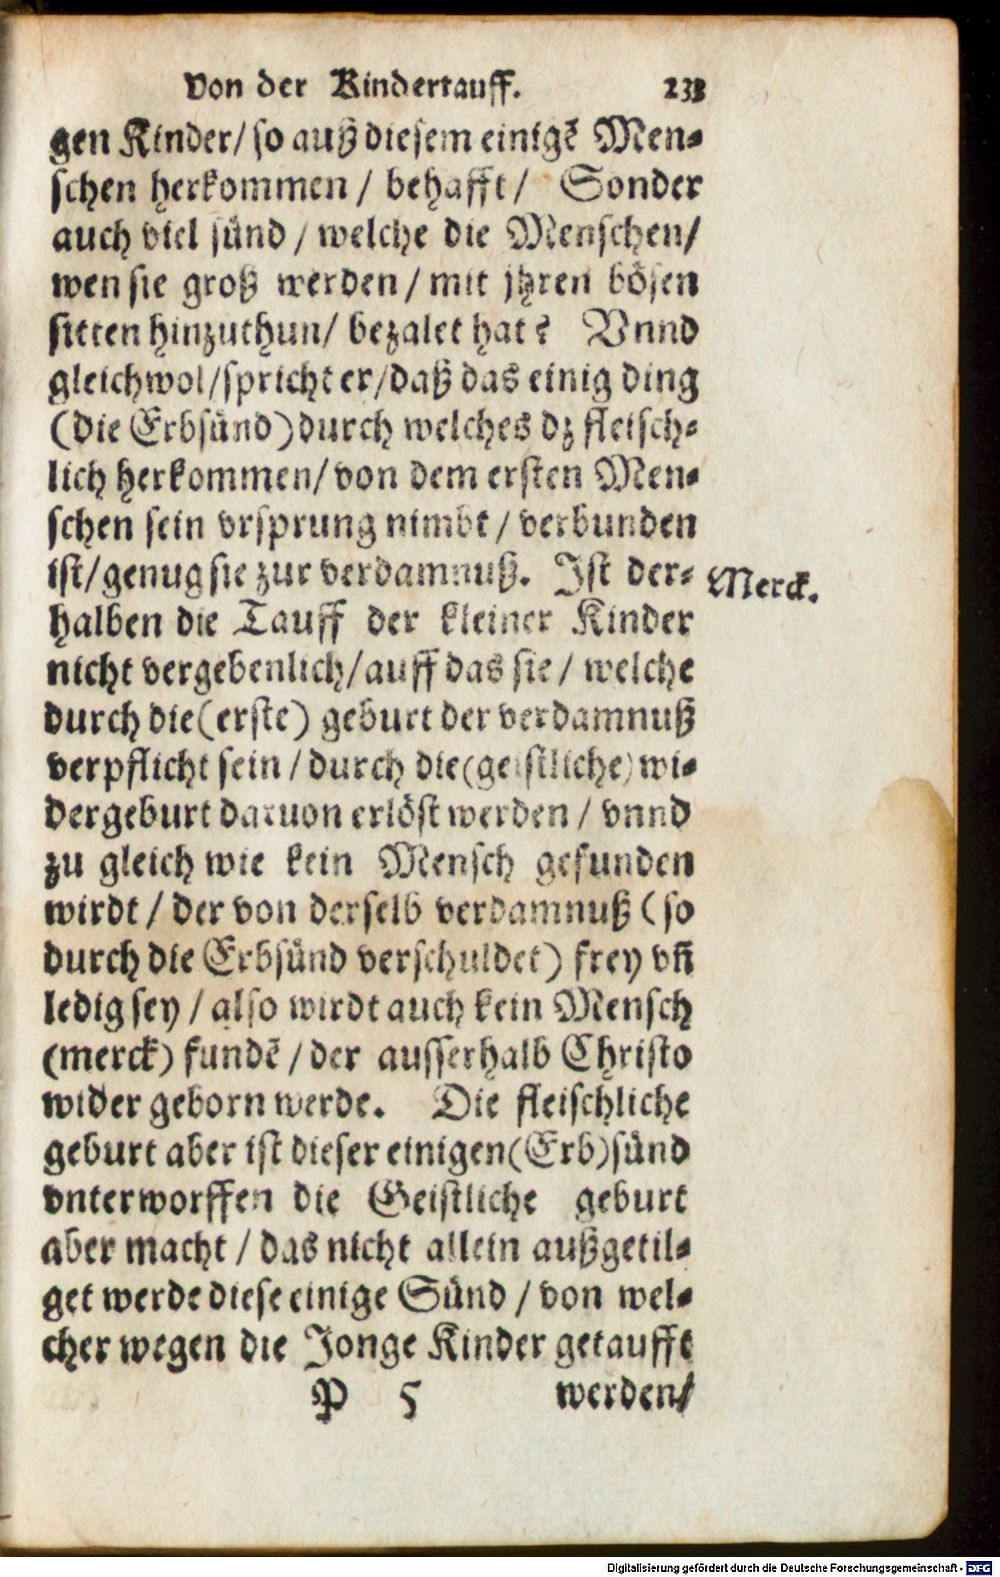 Von der Kindertauff. 233
gen Kinder/ so auß diesem einigē Men-
schen herkommen / behafft / Sonder
auch viel sünd / welche die Menschen/
wen sie groß werden / mit jhren bösen
sitten hinzuthun/ bezalet hat? Vnnd
gleichwol/spricht er/daß das einig ding
(die Erbsünd) durch welches dz fleisch-
lich herkommen/ von dem ersten Men-
schen sein vrsprung nimbt / verbunden
ist/genug sie zur verdamnuß. Ist der-
Merck.
halben die Tauff der kleiner Kinder
nicht vergebenlich/auff das sie / welche
durch die (erste) geburt der verdamnuß
verpflicht sein / durch die (geistliche) wi-
dergeburt daruon erlöst werden / vnnd
zu gleich wie kein Mensch gefunden
wirdt / der von derselb verdamnuß (so
durch die Erbsünd verschuldet) frey vñ
ledig sey / also wirdt auch kein Mensch
(merck) fundē / der ausserhalb Christo
wider geborn werde. Die fleischliche
geburt aber ist dieser einigen (Erb)sünd
vnterworffen die Geistliche geburt
aber macht / das nicht allein außgetil-
get werde diese einige Sünd / von wel-
cher wegen die Jonge Kinder getaufft
P 5 werden/
Digitalisierung gefördert durch die Deutsche Forschungsgemeinschaft - DFG